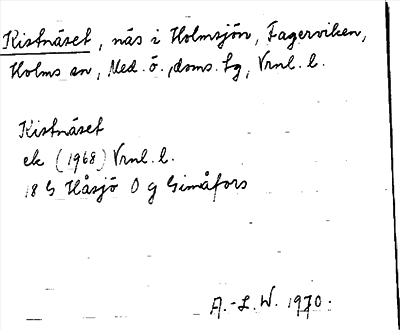 Kistnäset, näs i Holmsjön, Fagerviken,
Holms sn, Med. ö., doms. tg, Vrnl. l.
Kistnäset
ek (1968) Vrnl. l.
18 G Håsjö 0 g Gimåfors
A.-L. W. 1970.